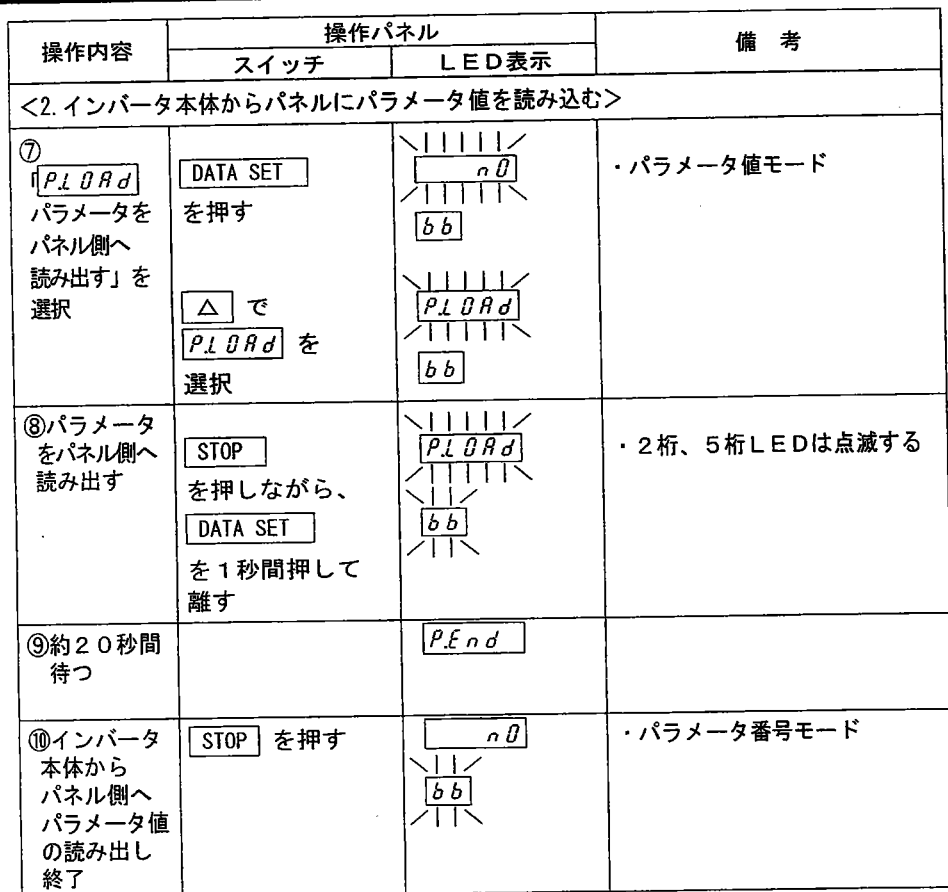 操作内容 操作パネル 備 考
スイッチ LED表示
<2. インバータ本体からパネルにパラメータ値を読み込む>
⑦
「P.LOAd
パラメータを
パネル側へ
読み出す」を
選択
DATA SET
を押す
△ で
P.LOAd を
選択
n0
bb
P.LOAd
bb
・パラメータ値モード
⑧パラメータ
をパネル側へ
読み出す
STOP
を押しながら、
DATA SET
を1秒間押して
離す
P.LOAd
bb
・2桁、5桁LEDは点滅する
⑨約20秒間
待つ
P.End
⑩インバータ
本体から
パネル側へ
パラメータ値
の読み出し
終了
STOP を押す
n0
bb
・パラメータ番号モード